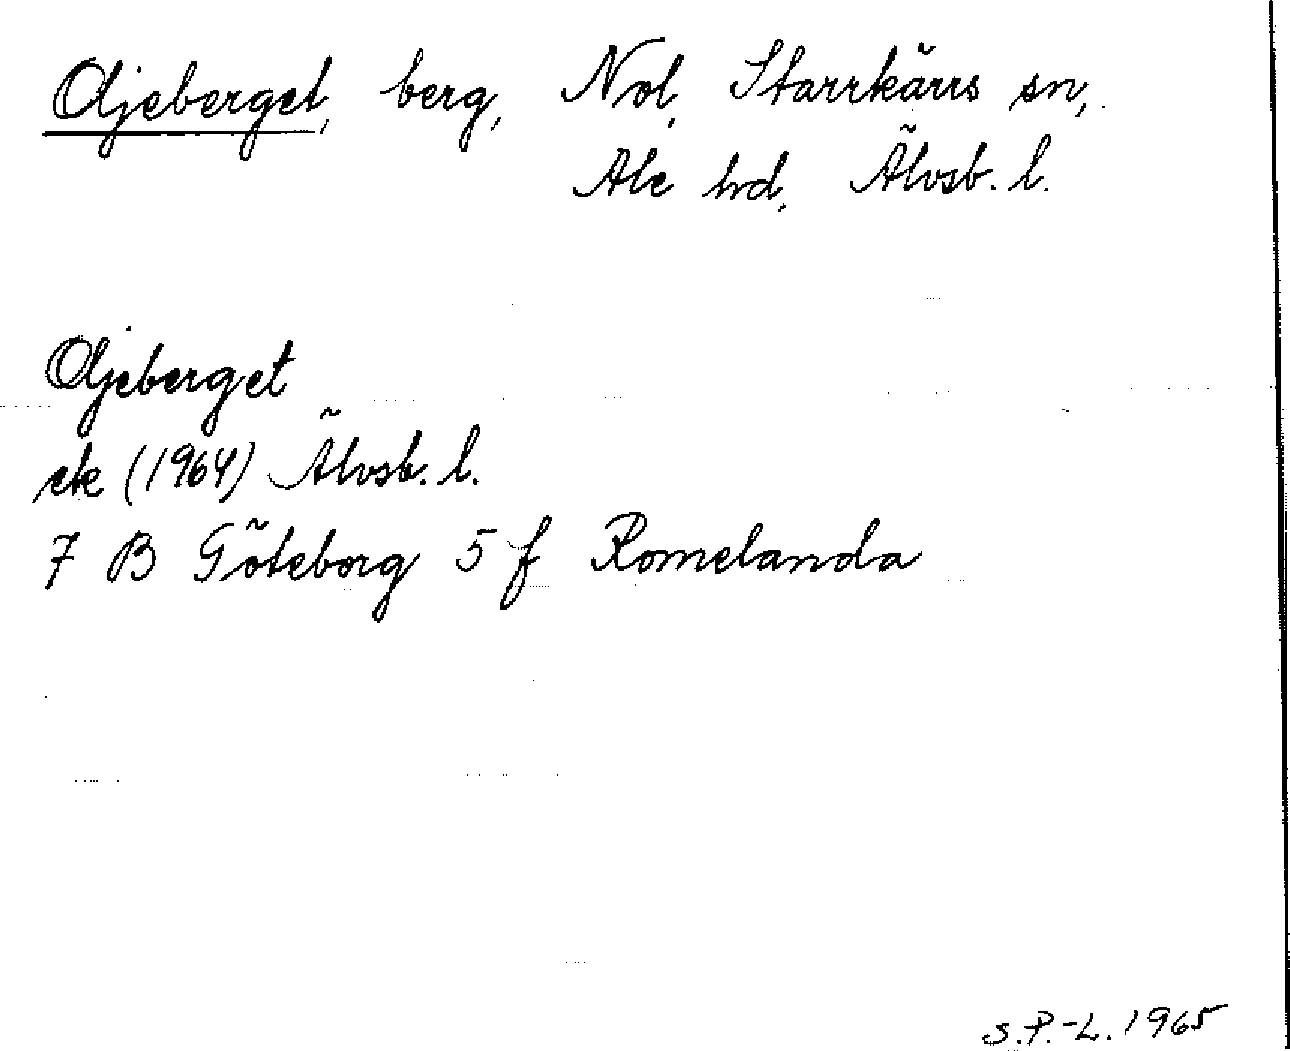 Oljeberget, berg, Nol, Starrkärrs sn,
Ale hd, Älvsb. l.
Oljeberget
ek (1964) Älvsb. l.
7 B Göteborg 5 f Romelanda
S.P.-L. 1965